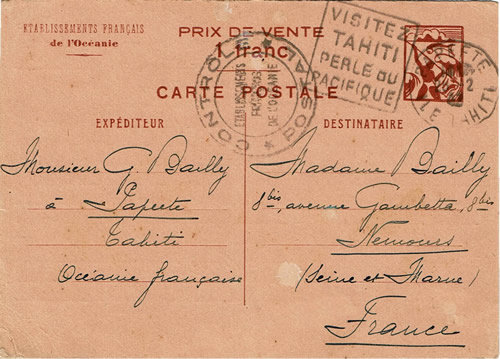 ETABLISSEMENTS FRANÇAIS
de l'Océanie
PRIX DE VENTE
1 franc
CARTE POSTALE
VISITEZ
TAHITI
PERLE DU
PACIFIQUE
CONTRÔLE POSTAL
ETABLISSEMENTS
FRANÇAIS
DE L'OCEANIE
PAPEETE
ILE TAHITI
EXPÉDITEUR
Monsieur G. Bailly
à Papeete
Tahiti
Océanie française
DESTINATAIRE
Madame Bailly
8bis, avenue Gambetta, 8bis
Nemours
(Seine et Marne)
France